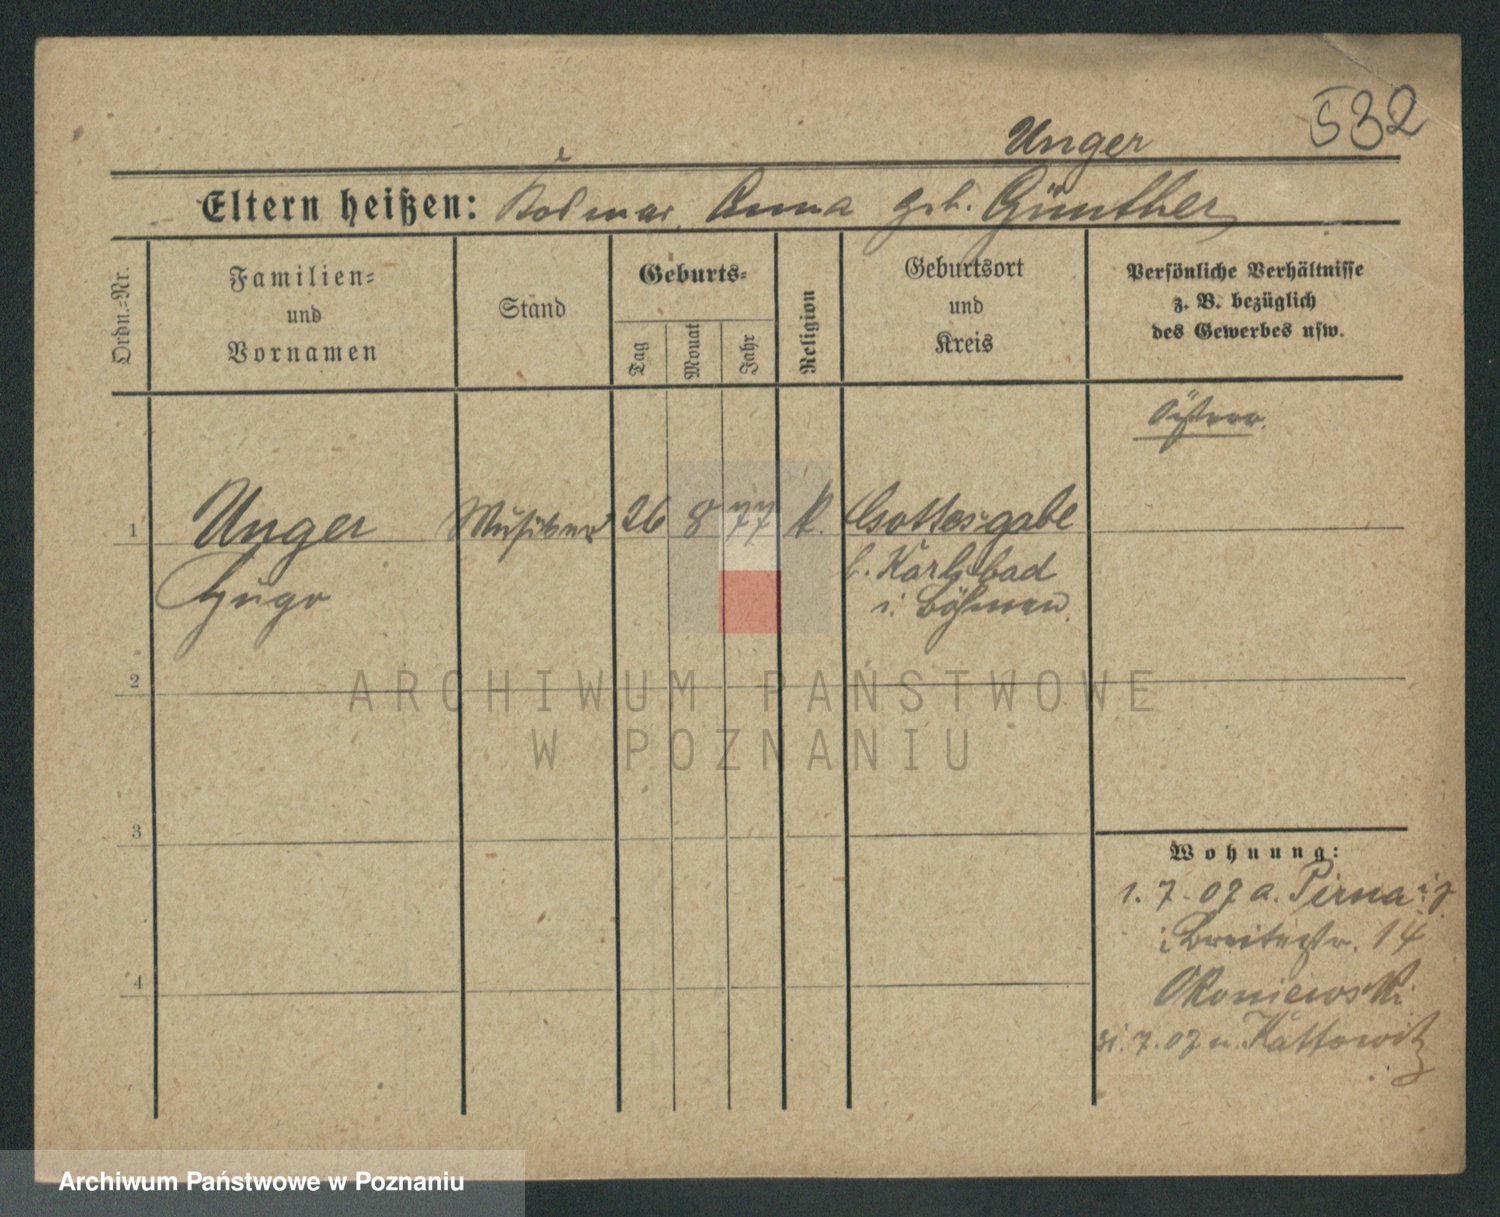 532
Unger
Eltern heißen: Kolmar, Anna geb. Günther,
Ordn.-Nr.
Familien-
und
Vornamen
Stand
Geburts-
Tag
Monat
Jahr
Religion
Geburtsort
und
Kreis
Persönliche Verhältnisse
z. B. bezüglich
des Gewerbes usw.
Österr.
1 Unger Musiker 26 8 77 K. Gottesgabe
Hugo
b. Karlsbad
i. Böhmen.
2
ARCHIWUM PAŃSTWOWE
W POZNANIU
3
4
Wohnung:
1. 7. 07 a. Pirna
Breitestr. 14
Okoniewski
31. 7. 07 n. Kattowitz
Archiwum Państwowe w Poznaniu